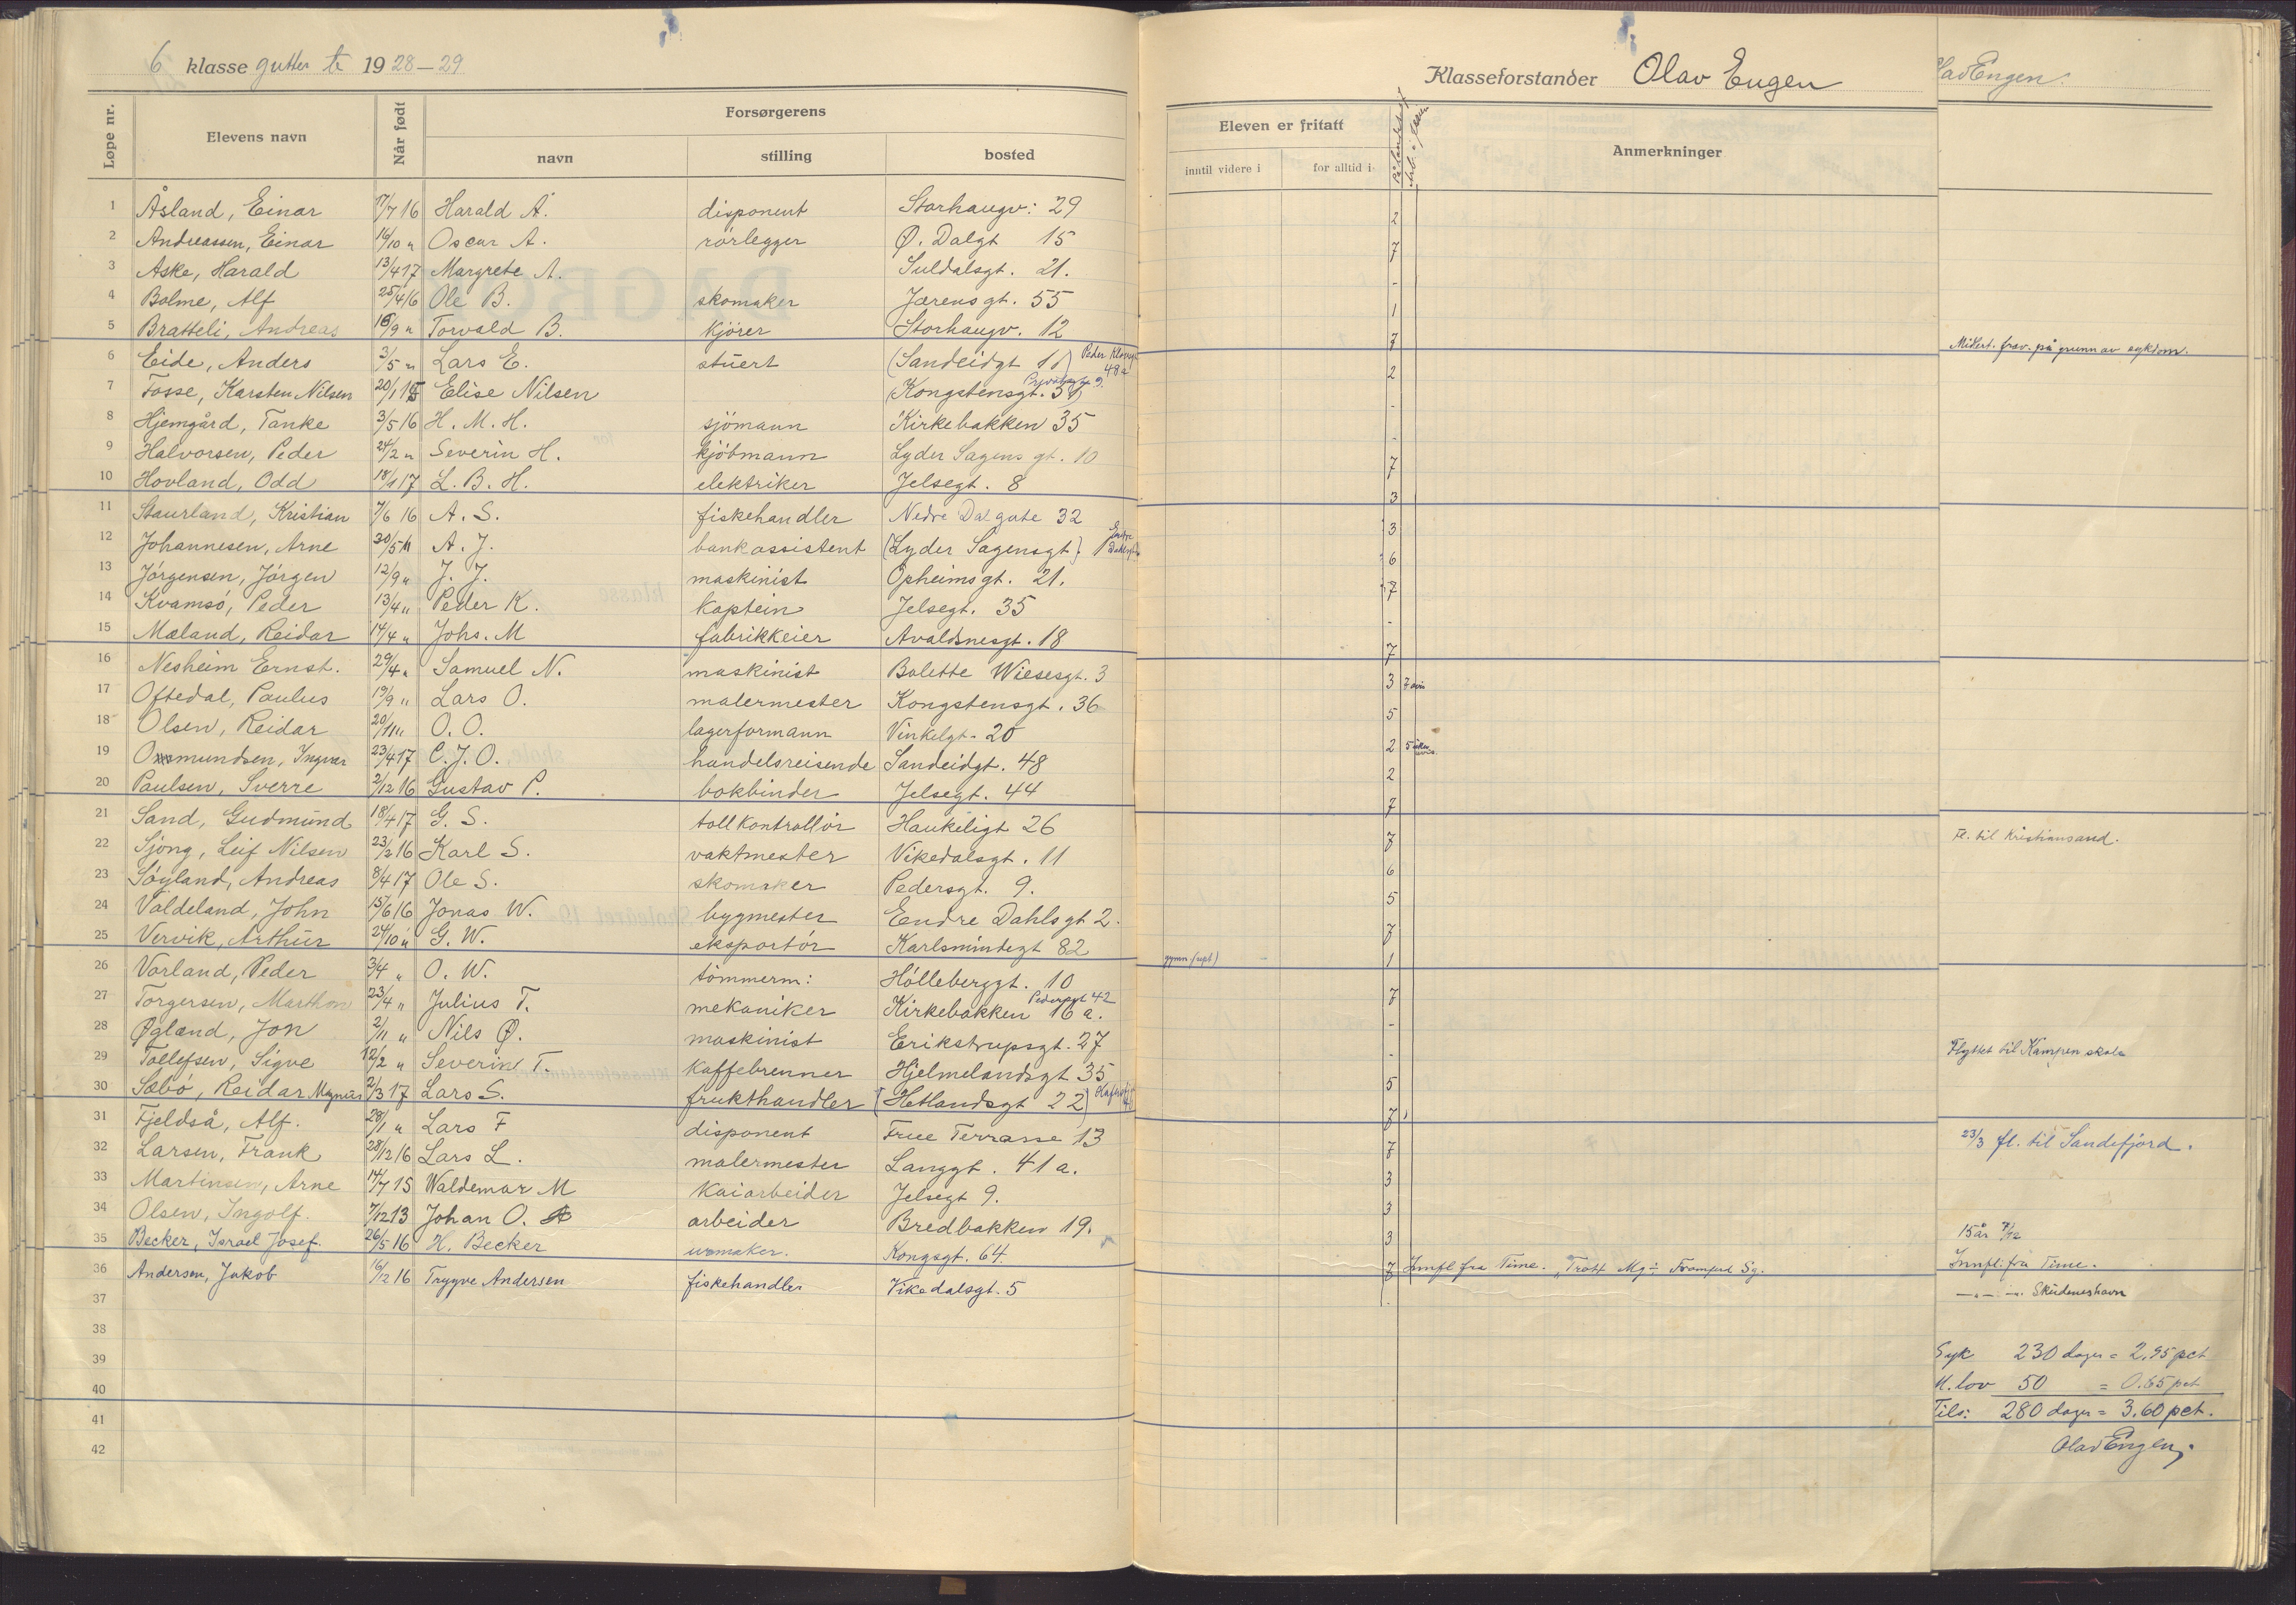 6 klasse gutter te 1928-29
Løpe nr. Elevens navn Når født Forsørgerens
navn stilling bosted
1 Åsland, Einar 17/7 16 Harald Å. disponent Storhaugv: 29
2 Andreassen, Einar 16/10 " Oscar A. rørlegger Ø. Dalgt 15
3 Aske, Harald 13/4 17 Margrete A. Suldalsgt. 21.
4 Bolme, Alf 25/4 16 Ole B. skomaker Jærensgt. 55
5 Bratteli, Andreas 16/9 " Torvald B. kjörer Storhaugv. 12
6 Eide, Anders 3/5 " Lars E. stuert (Sandeidgt 11) Peder Klowsgt 48a
7 Fosse, Karsten Nilsen 20/1 15 Elise Nilsen (Kongstensgt. 31)
8 Hjemgård, Tanke 3/5 16 H. M. H. sjömann Kirkebakken 35
9 Halvorsen, Peder 24/2 " Severin H. kjöbmann Lyder Sagens gt. 10
10 Hovland, Odd 18/1 17 L. B. H. elektriker Jelsegt. 8
11 Staurland, Kristian 7/6 16 A. S. fiskehandler Nedre Dalgate 32
12 Johannesen, Arne 30/5 A. J. bankassistent (Lyder Sagensgt) Endre Dahlsgt
13 Jörgensen, Jörgen 12/9 " J. J. maskinist Opheimsgt. 21.
14 Kvamsö, Peder 13/4 " Peder K. kaptein Jelsegt. 35
15 Mæland, Reidar 14/4 " Johs. M fabrikkeier Avaldsnesgt. 18
16 Nesheim Ernst. 29/4 " Samuel N. maskinist Bolette Wiesesgt. 3
17 Oftedal, Paulus 19/9 " Lars O. malermester Kongstensgt. 36
18 Olsen, Reidar 20/11 " O. O. lagerformann Vinkelgt. 20
19 Ommundsen, Ingvar 23/4 17 C. J. O. handelsreisende Sandeidgt. 48
20 Paulsen, Sverre 2/12 16 Gustav P. bokbinder Jelsegt. 44
21 Sand, Gudmund 18/4 17 G. S. tollkontrollör Haukeligt 26
22 Sjöng, Leif Nilsen 23/2 16 Karl S. vaktmester Vikedalsgt. 11
23 Söyland, Andreas 8/4 17 Ole S. skomaker Pedersgt. 9.
24 Valdeland, John 15/6 16 Jonas W. bygmester Endre Dahlsgt 2.
25 Vervik, Arthur 24/10 " G. W. eksportör Karlsmindegt 82
26 Vorland, Peder 3/4 " O. W. tömmerm: Hölleberggt. 10
27 Torgersen, Marthon 23/4 " Julius T. mekaniker Kirkebakken 16 a. Pedersgt 42
28 Øgland, Jon 2/11 " Nils Ø. maskinist Erikstrupsgt. 27
29 Tollefsen, Sigve 12/2 " Severin T. kaffebrenner Hjelmelandsgt 35
30 Sæbö, Reidar Magnus 2/3 17 Lars S. frukthandler (Hetlandsgt 22)
31 Fjeldså, Alf. 28/1 " Lars F disponent Frue Terrasse 13
32 Larsen, Frank 28/12 16 Lars L. malermester Langgt. 41 a.
33 Martinsen, Arne 14/7 15 Waldemar M kaiarbeider Jelsegt 9.
34 Olsen, Ingolf. 7/12 13 Johan O. arbeider Bredbakken 19.
35 Becker, Israel Josef. 26/5 16 H. Becker urmaker. Kongsgt. 64.
36 Andersen, Jakob 16/12 16 Trygve Andersen fiskehandler Vikedalsgt. 5
37
38
39
40
41
42
Klasseforstander Olav Engen
Eleven er fritatt
inntil videre i for alltid i Anmerkninger
2
7
-
1
7
2
-
-
7
3
3
6
7
-
7
3 7 avis
5
2 5
2
7
7
6
5
7
gymn (sept) - 1
7
-
-
5
7
7
3
3
3
7 Innfl fra Time.
Olav Engen.
Midlert. frav. på grunn av sykdom.
Fl. til Kristiansand.
Flyttet til Kampen skole
23/3 fl. til Sandefjord.
15 år 7/12
Innfl. fra Time.
-"- -"- Skudeneshavn
Syk 230 dager = 2,95 pct
M. lov 50 = 0.65 pct
Tils: 280 dager = 3,60 pct.
Olav Engen.